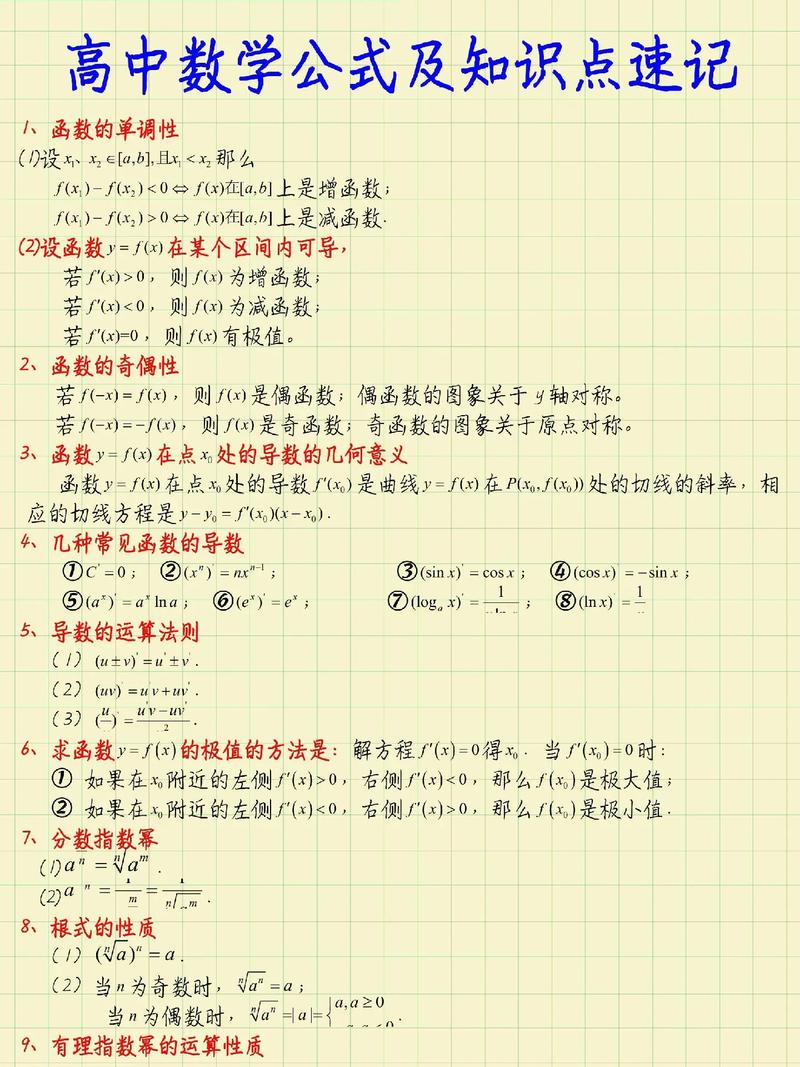 高中数学公式及知识点速记
1、函数的单调性
(1)设x₁、x₂∈[a,b],且x₁<x₂那么
f(x₁)−f(x₂)<0⇔f(x)在[a,b]上是增函数;
f(x₁)−f(x₂)>0⇔f(x)在[a,b]上是减函数.
(2)设函数y=f(x)在某个区间内可导,
若f′(x)>0,则f(x)为增函数;
若f′(x)<0,则f(x)为减函数;
若f′(x)=0,则f(x)有极值。
2、函数的奇偶性
若f(−x)=f(x),则f(x)是偶函数;偶函数的图象关于y轴对称。
若f(−x)=−f(x),则f(x)是奇函数;奇函数的图象关于原点对称。
3、函数y=f(x)在点x₀处的导数的几何意义
函数y=f(x)在点x₀处的导数f′(x₀)是曲线y=f(x)在P(x₀,f(x₀))处的切线的斜率,相
应的切线方程是y−y₀=f′(x₀)(x−x₀).
4、几种常见函数的导数
①C′=0; ②(xⁿ)′=nxⁿ⁻¹; ③(sin x)′=cos x; ④(cos x)′=−sin x;
⑤(aˣ)′=aˣ ln a; ⑥(eˣ)′=eˣ; ⑦(logₐ x)′=1/ ; ⑧(ln x)′=1/
5、导数的运算法则
(1) (u±v)′=u′±v′.
(2) (uv)′=u′v+uv′.
(3) (u/ )′=(u′v−uv′)/ ².
6、求函数y=f(x)的极值的方法是:解方程f′(x)=0得x₀.当f′(x₀)=0时:
① 如果在x₀附近的左侧f′(x)>0,右侧f′(x)<0,那么f(x₀)是极大值;
② 如果在x₀附近的左侧f′(x)<0,右侧f′(x)>0,那么f(x₀)是极小值.
7、分数指数幂
(1)a ⁿ=ⁿ√aᵐ.
(2)a ⁿ=1/ m =1/ⁿ√aᵐ.
8、根式的性质
(1) (ⁿ√a)ⁿ=a.
(2) 当n为奇数时,ⁿ√aⁿ=a;
当n为偶数时,ⁿ√aⁿ=|a|={a,a≥0
9、有理指数幂的运算性质